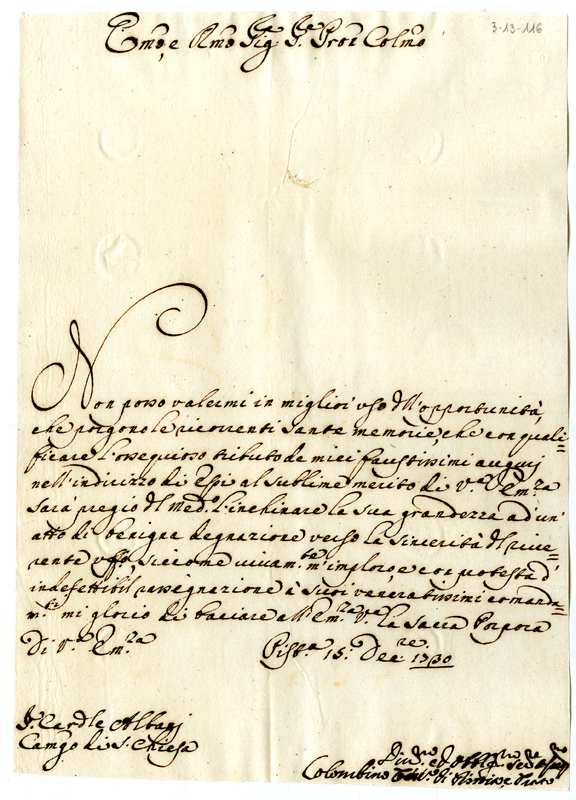 3-13-116
Emo, e Rmo Sig.r Sig.r Pron Colmo
Non posso valermi in miglior uso dell'opportunità,
che porgono le ricorrenti sante memorie, che con quali=
ficare l'ossequioso tributo de miei faustissimi augurj
nell'indirizzo di Essi al sublime merito di V.ra Em.za
Sarà pregio del Med.o l'inchinare la sua grandezza ad un'
atto di benigna degnazione verso la sincerità del rive=
rente uffo, siccome vivam.te m'imploro, e con protesta d'
indefettibil rassegnazione à suoi veneratissimi comanda=
m.ti mi glorio di baciare all'Em.za V.ra la Sacra Porpora
Di V.ra Em.za Pist.a 15: Dec.re 1730
S.r Cardle Albani
Camgo di S. Chiesa
Colombino di Pistoia, e Prato